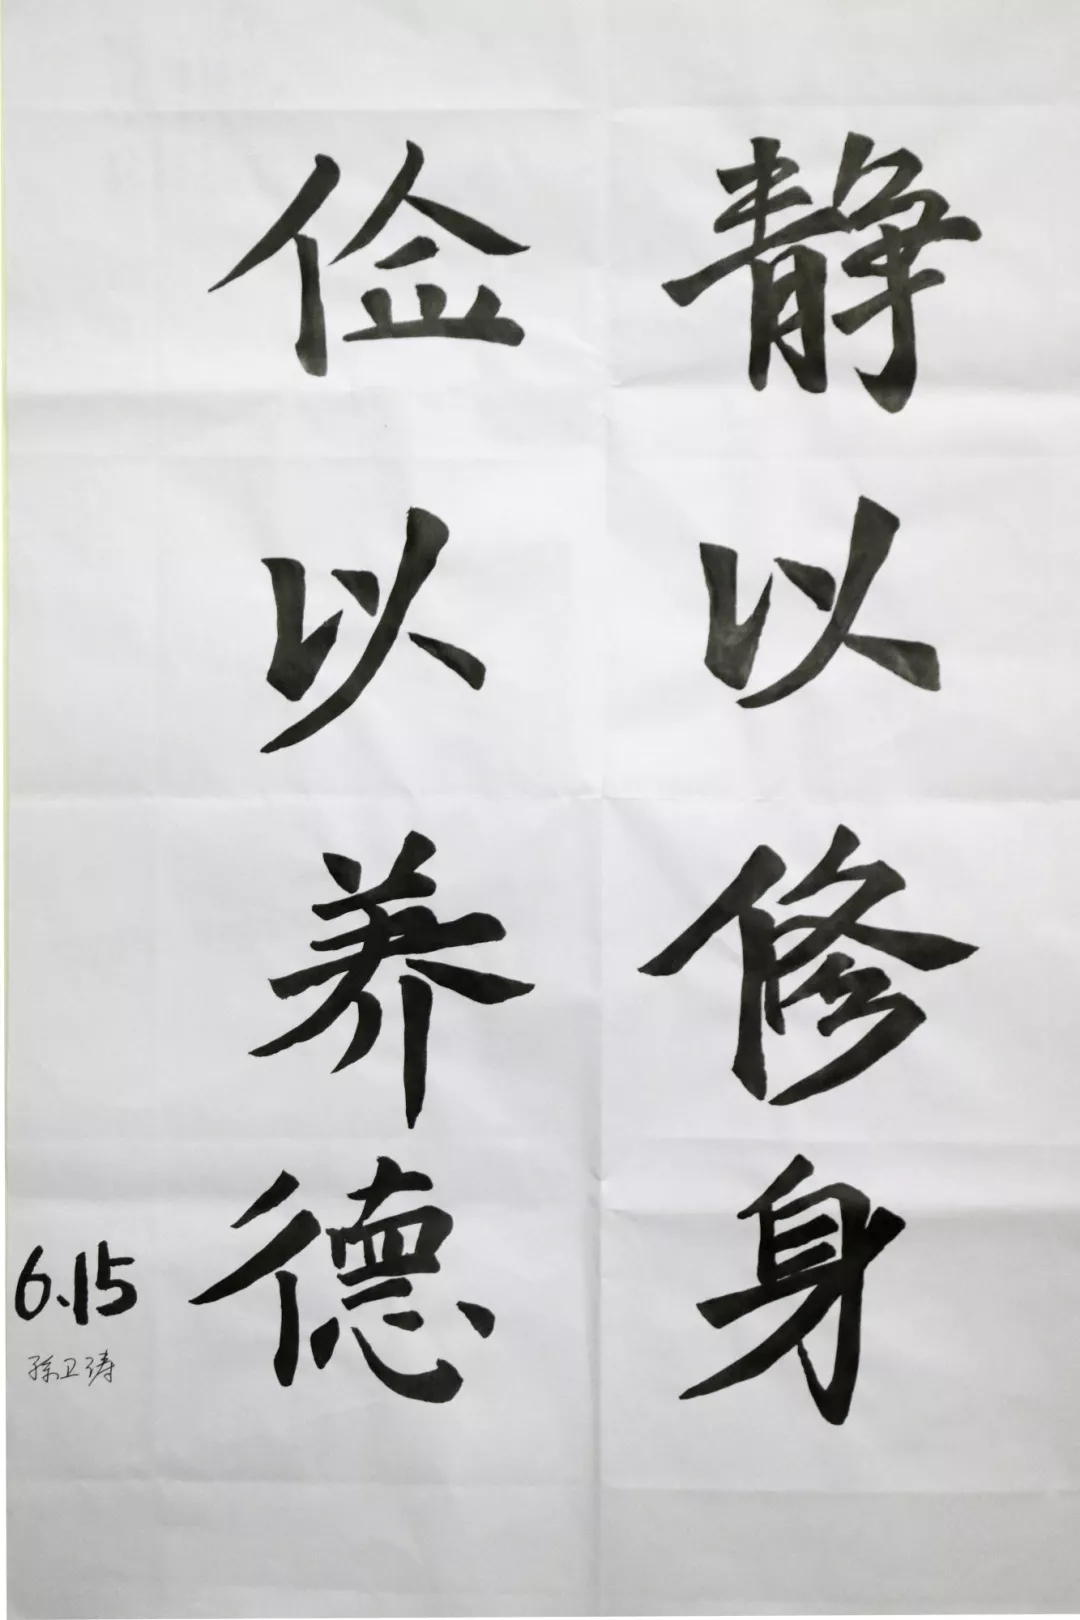 静以修身
俭以养德
6.15
孙卫涛